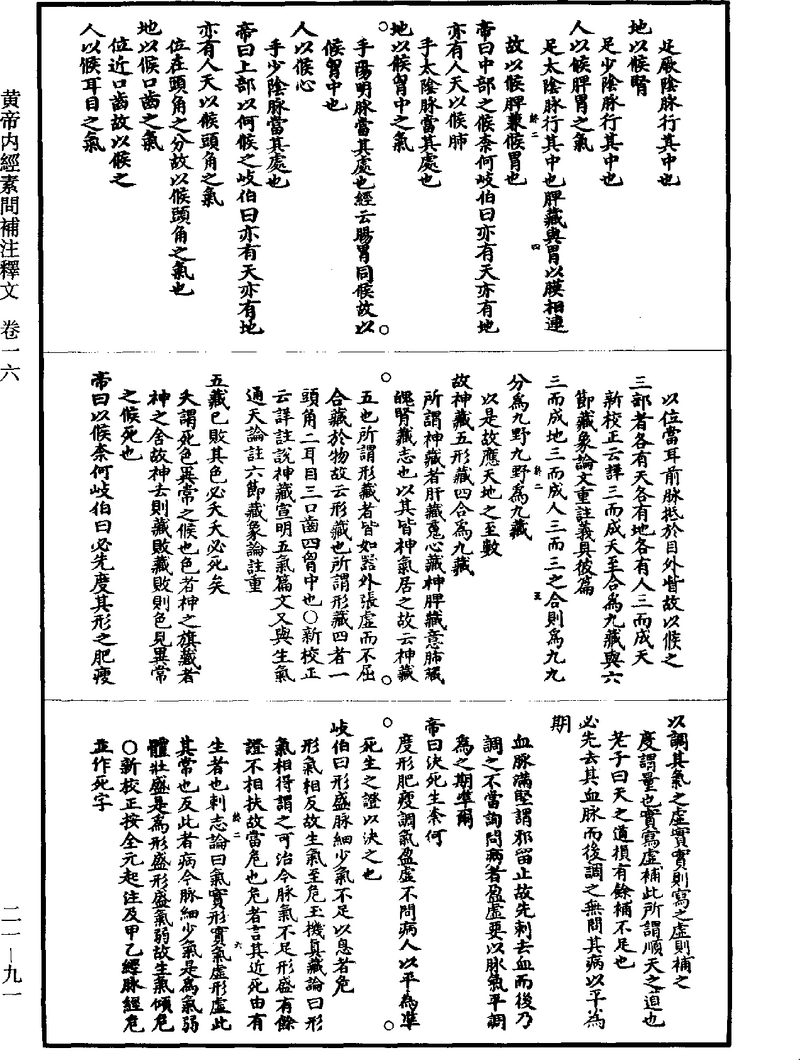 足厥陰脉行其中也
地以候腎
足少陰脉行其中也
人以候脾胃之氣
足太陰脉行其中也脾藏與胃以膜相連
故以候脾兼候胃也
帝曰中部之候柰何岐伯曰亦有天亦有地
亦有人天以候肺
手太陰脉當其處也
地以候胷中之氣
手陽明脉當其處也經云腸胃同候故以
候胷中也
人以候心
手少陰脉當其處也
帝曰上部以何候之岐伯曰亦有天亦有地
亦有人天以候頭角之氣
位在頭角之分故以候頭角之氣也
地以候口齒之氣
位近口齒故以候之
人以候耳目之氣
以位當耳前脉抵於目外眥故以候之
三部者各有天各有地各有人三而成天
新校正云詳三而成天至合爲九藏與六
節藏象論文重註義具彼篇
三而成地三而成人三而三之合則爲九九
分爲九野九野爲九藏
以是故應天地之至數
故神藏五形藏四合爲九藏
所謂神藏者肝藏䰟心藏神脾藏意肺藏
魄腎藏志也以其皆神氣居之故云神藏
五也所謂形藏者皆如器外張虛而不屈
合藏於物故云形藏也所謂形藏四者一
頭角二耳目三口齒四胷中也○新校正
云詳註說神藏宣明五氣篇文又與生氣
通天論註六節藏象論註重
五藏已敗其色必夭夭必死矣
夭謂死色異常之候也色者神之旗藏者
神之舍故神去則藏敗藏敗則色見異常
之候死也
帝曰以候柰何岐伯曰必先度其形之肥瘦
以調其氣之虛實實則寫之虛則補之
度謂量也實寫虛補此所謂順天之道也
老子曰天之道損有餘補不足也
必先去其血脉而後調之無問其病以平爲
期
血脉滿堅謂邪留止故先刺去血而後乃
調之不當詢問病者盈虛要以脉氣平調
爲之期準爾
帝曰決死生柰何
度形肥瘦調氣盈虛不問病人以平為準
死生之證以決之也
岐伯曰形盛脉細少氣不足以息者危
形氣相反故生氣至危玉機真藏論曰形
氣相得謂之可治今脉氣不足形盛有餘
證不相扶故當危也危者言其近死由有
生者也刺志論曰氣實形實氣虛形虛此
其常也反此者病今脉細少氣是為氣弱
體壯盛是爲形盛形盛氣弱故生氣傾危
○新校正按全元起注及甲乙經脉經危
並作死字
黄帝内經素問補注釋文　卷一六
二一—九一